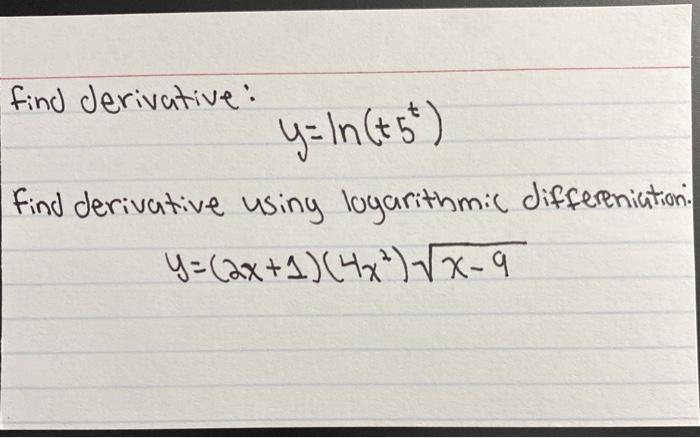 find derivative:
y=ln(t5^t)
find derivative using logarithmic differeniation:
y=(2x+1)(4x²)√x-9